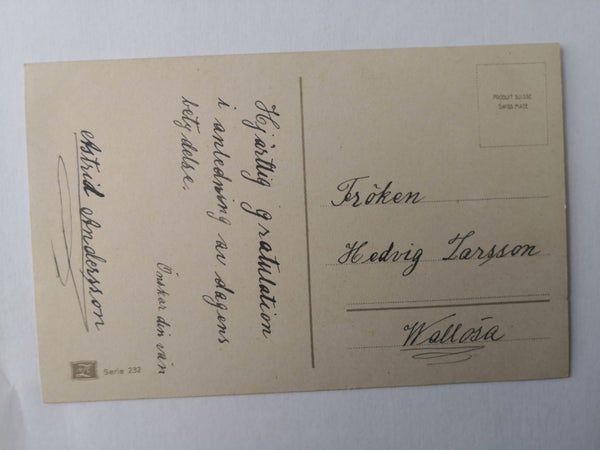 Hjärtlig gratulation
i anledning av dagens
betydelse.
Önskar din vän
Astrid Andersson
PRODUIT SUISSE
SWISS MADE
Fröken
Hedvig Larsson
Wallösa
Serie 232